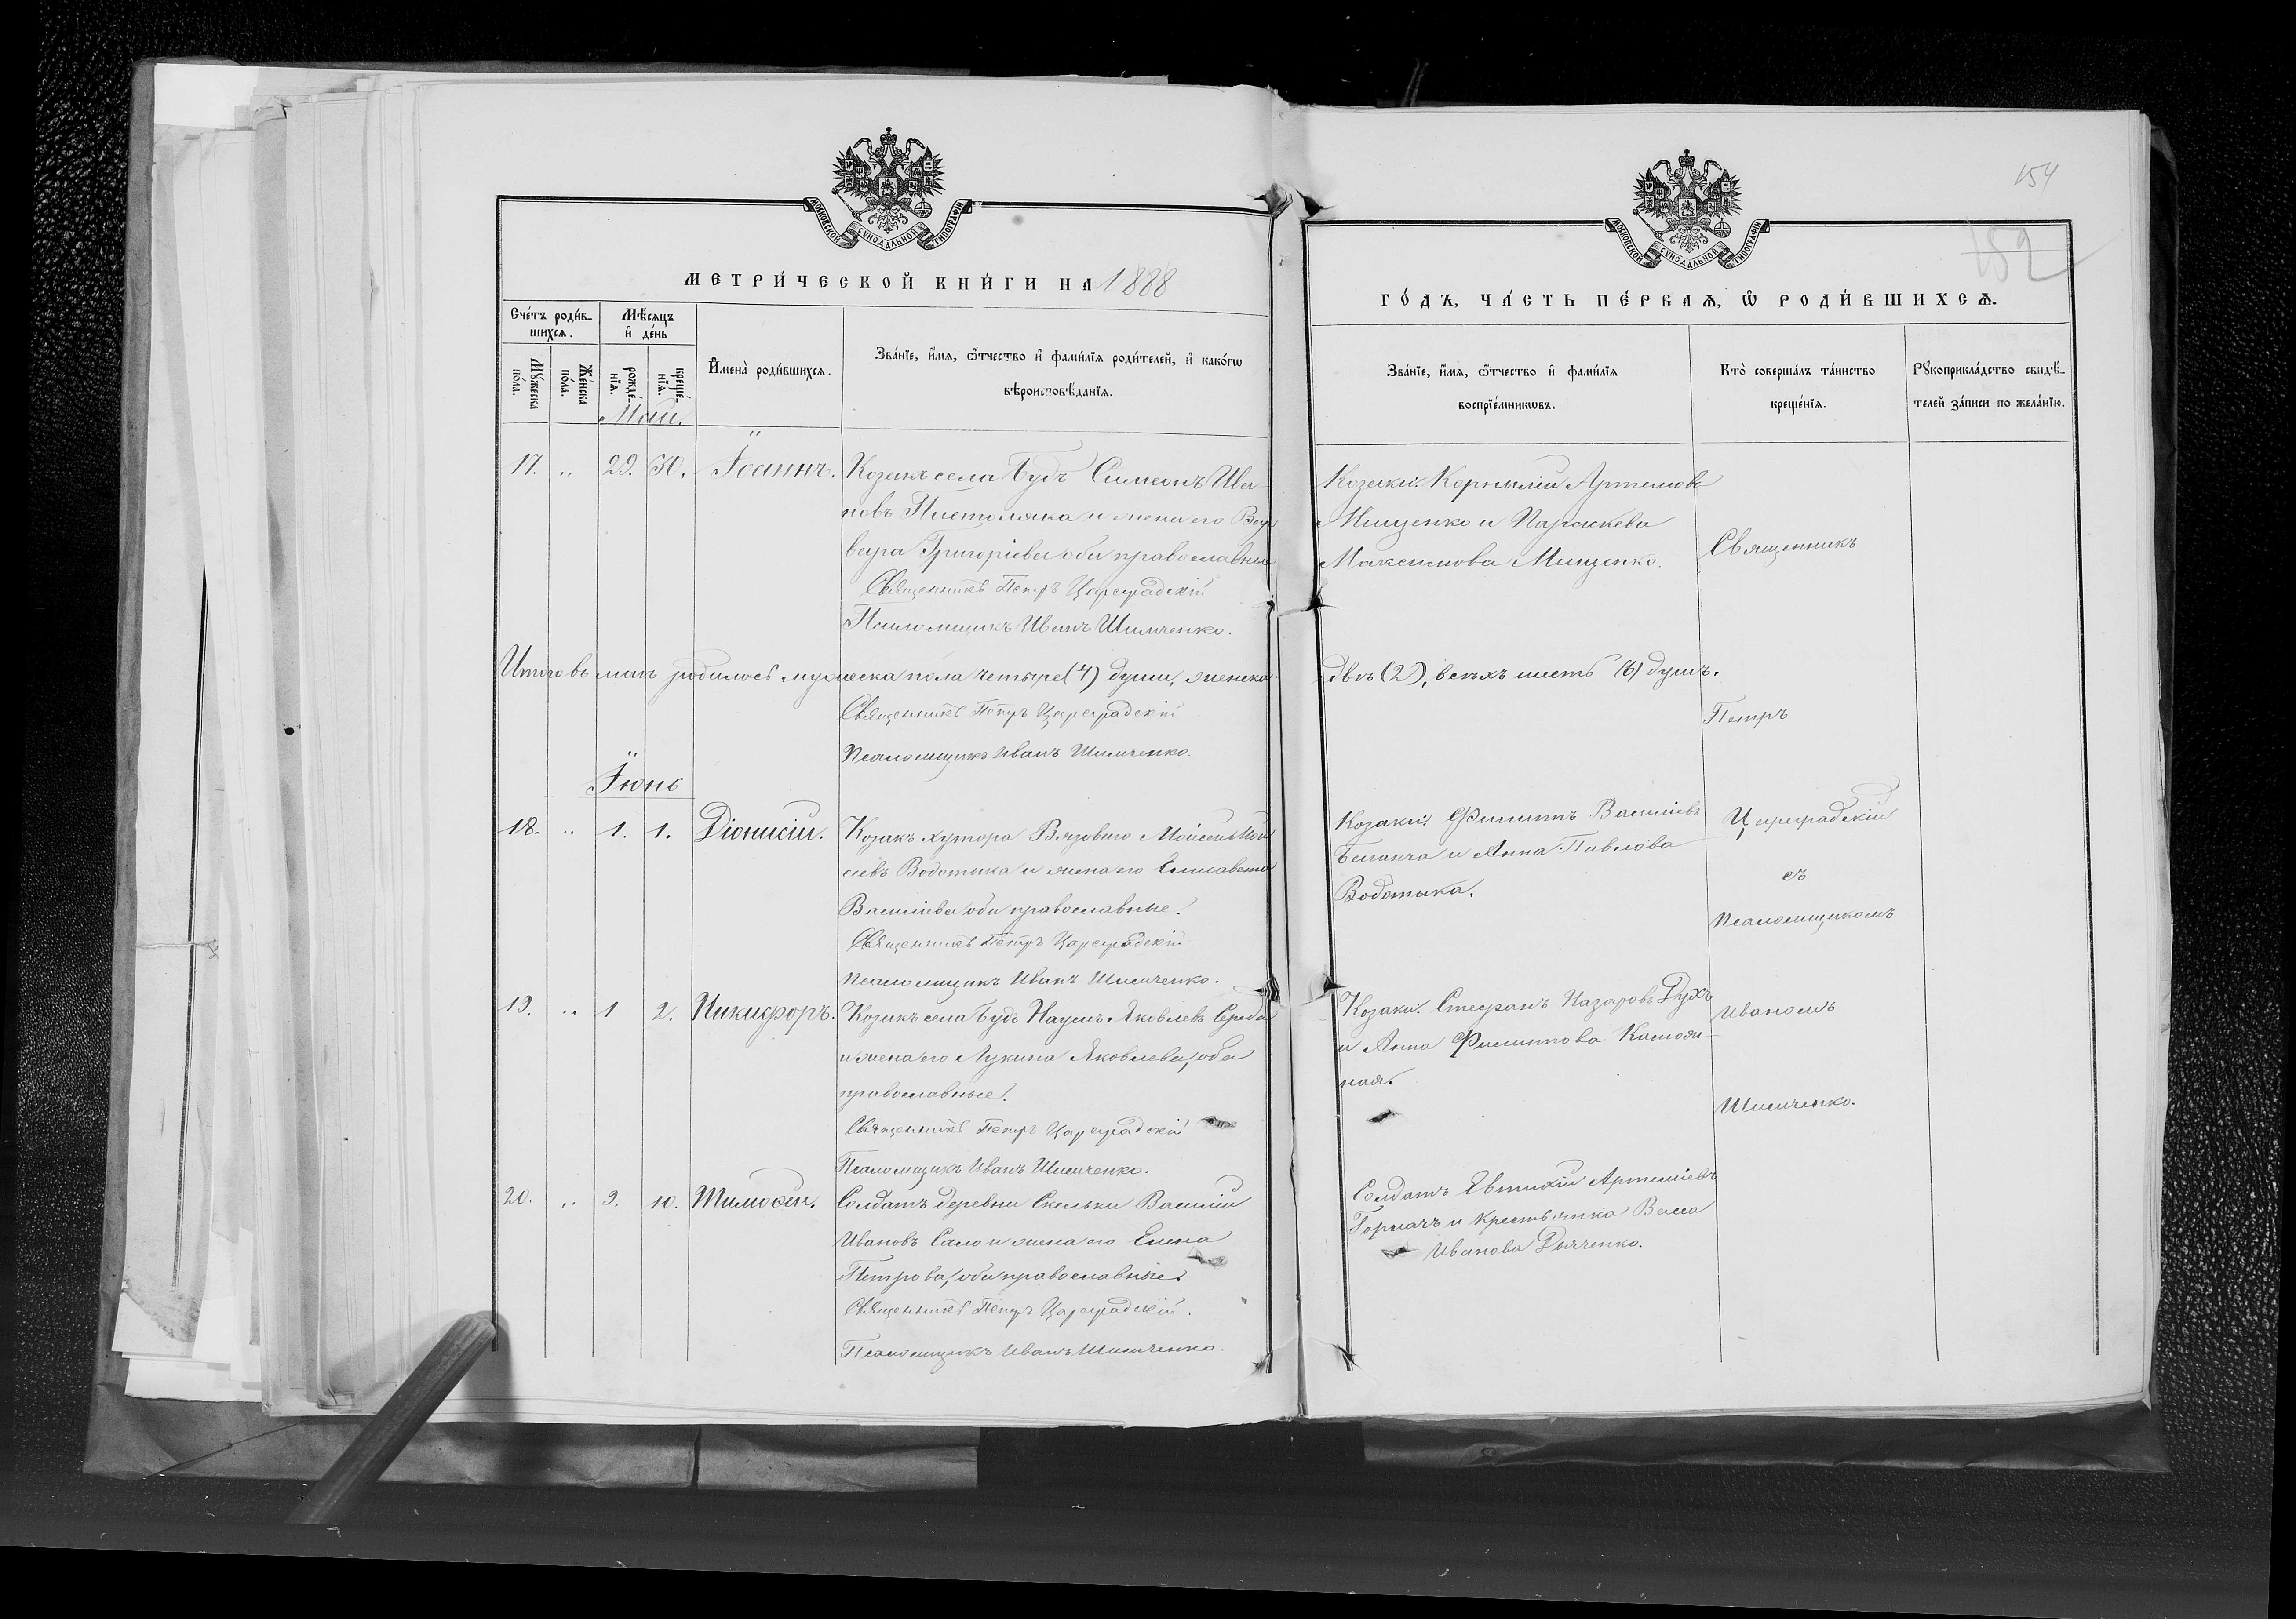 МОСКОВСКОЙ СѴНОДАЛЬНОЙ ТИПОГРАФІИ
МЕТРИ́ЧЕСКОЙ КНИ́ГИ НА 1888
Сче́тъ роди́в-
шихсѧ.
Мѣ́сѧцъ
и҆ де́нь
Мꙋ́жеска
по́ла.
Же́нска
по́ла.
рожде́-
нїѧ.
креще́-
нїѧ.
И҆мена̀ роди́вшихсѧ.
Зва́нїе, и҆́мѧ, ѻ҆́тчество и҆ фами́лїѧ роди́телей, и҆ како́гѡ
вѣроисповѣ́данїѧ.
Май.
17. „ 29. 30. Іоаннъ. Козакъ села Будъ Симеонъ Ива-
новъ Пистоляка и жена его Вар
вара Григоріева оба православные
Священникъ Петръ Цареградскій
Псаломщикъ Иванъ Шимченко.
Итого въ маѣ родилось мужеска пола четыре (4) души, женска
Священникъ Петръ Цареградскій
Псаломщикъ Иванъ Шимченко.
Іюнь
18. „ 1. 1. Діонисій. Козакъ хутора Вязоваго Моисей Мои
сіевъ Водотыка и жена его Елисавета
Василіева оба православные.
Священникъ Петръ Цареградскій
Псаломщикъ Иванъ Шимченко.
19. „ 1 2. Никифоръ. Козакъ села Будъ Наумъ Яковлевъ Середа
и жена его Лукина Яковлева, оба
православные.
Священникъ Петръ Цареградскій
Псаломщикъ Иванъ Шимченко.
20. „ 9. 10. Тимоѳей. Солдатъ деревни Скельки Василій
Ивановъ Сало и жена его Елена
Петрова, оба православные.
Священникъ Петръ Цареградскій.
Псаломщикъ Иванъ Шимченко.
154
152
МОСКОВСКОЙ СѴНОДАЛЬНОЙ ТИПОГРАФІИ
ГО́ДЪ, ЧА́СТЬ ПЕ́РВАѦ, Ѡ҆ РОДИ́ВШИХСѦ.
Зва́нїе, и҆́мѧ, ѻ҆́тчество и҆ фами́лїѧ
воспрїе́мникѡвъ.
Кто̀ соверша́лъ та́инство
креще́нїѧ.
Рꙋкоприкла́дство свидѣ́-
телей за́писи по жела́нїю.
Козаки: Корнилій Артемовъ
Мищенко и Параскева
Максимова Мищенко.
Священникъ
двѣ (2), всѣхъ шесть (6) душъ.
Петръ
Козаки: Филиппъ Василіевъ
и Анна Павлова
Водотыка.
Цареградскій
съ
псаломщикомъ
Козаки: Стефанъ Назаровъ Духъ
и Анна Филиппова Камоли-
ная.
Иваномъ
Шимченко.
Солдатъ Евтихій Артеміевъ
Гормачъ и крестьянка Васса
Иванова Дьяченко.